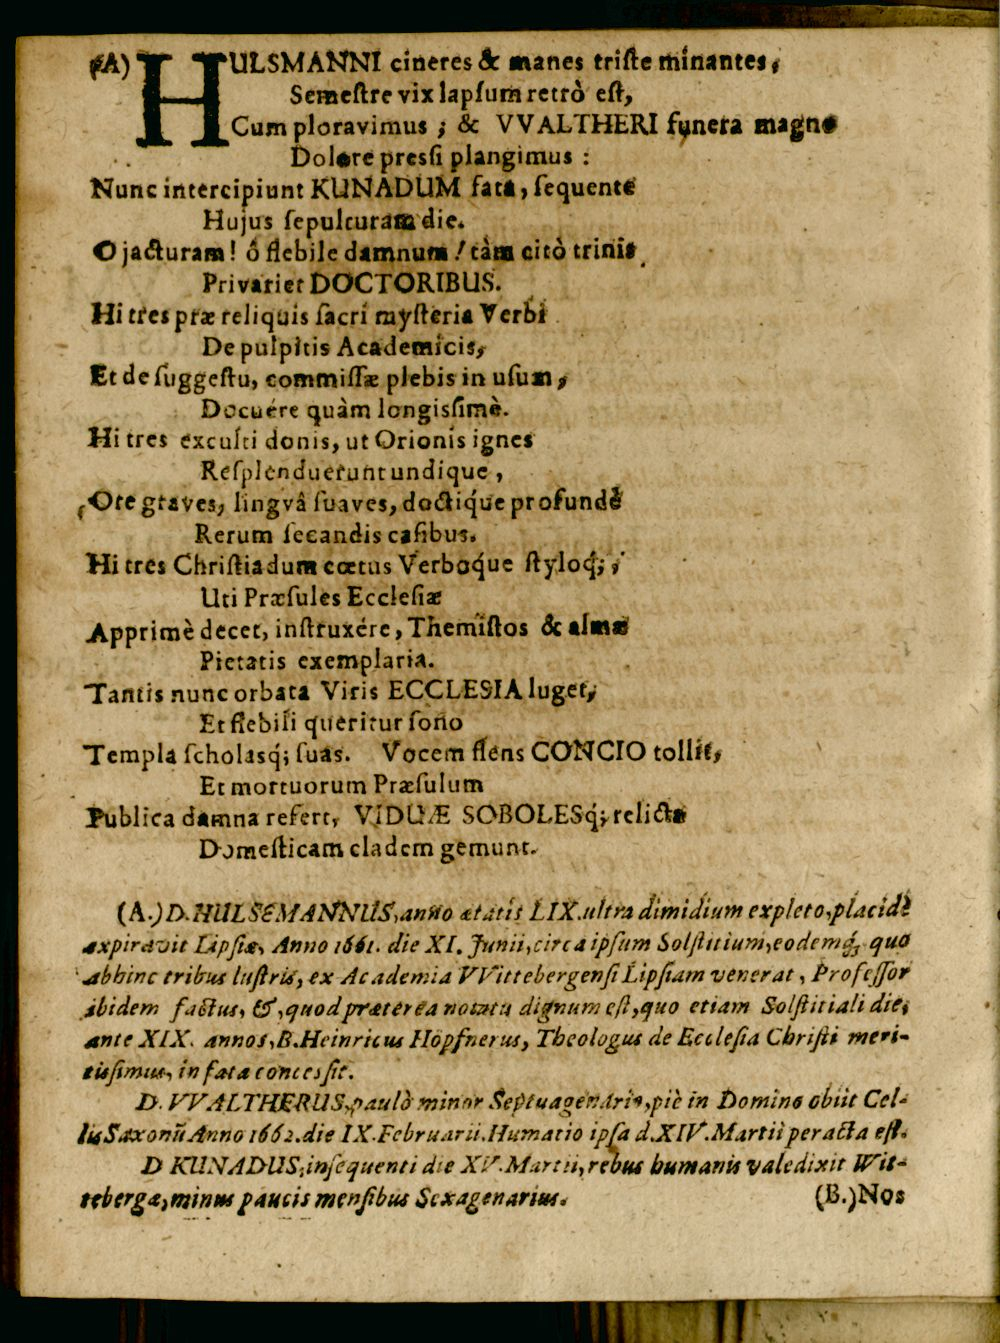 (A) HULSMANNI cineres & manes triſte minantes,
Semeſtre vix lapſum retrò eſt,
Cum ploravimus ; & VVALTHERI funera magno
Dolore presſi plangimus :
Nunc intercipiunt KUNADUM fata, ſequente
Hujus ſepulturam die.
O jacturam! ô flebile damnum! tàm citò trinis
Privarier DOCTORIBUS.
Hi tres præ reliquis ſacri myſteria Verbi
De pulpitis Academicis,
Et de ſuggeſtu, commiſſæ plebis in uſum,
Docuére quàm longisſimè.
Hi tres exculti donis, ut Orionis ignes
Reſplenduerunt undique,
Ore graves, lingvâ ſuaves, doctiq́ue profundè
Rerum ſecandis caſibus.
Hi tres Chriſtiadum cœtus Verboq́ue ſtyloq́;,
Uti Præſules Eccleſiæ
Apprimè decet, inſtruxére, Themiſtos & almæ
Pietatis exemplaria.
Tantis nunc orbata Viris ECCLESIA luget,
Et flebili queritur ſono
Templa ſcholasq́; ſuas. Vocem flens CONCIO tollit,
Et mortuorum Præſulum
Publica damna refert, VIDUÆ SOBOLESq́; relictæ
Domeſticam cladem gemunt.
(A.) D. HULSEMANNUS, anno ætatis LIX. ultra dimidium expleto, placidè
expiravit Lipſiæ, Anno 1661. die XI. Junii, circa ipſum Solſtitium, eodemq́, quo
abhinc tribus luſtris, ex Academia VVittebergenſi Lipſiam venerat, Profeſſor
ibidem factus, &, quod præterea notatu dignum eſt, quo etiam Solſtitiali die,
ante XIX. annos, B. Heinricus Höpfnerus, Theologus de Eccleſia Chriſti meri-
tisſimus, in fata concesſit.
D. VVALTHERUS, paulò minor Septuagenario, piè in Domino obiit Cel-
lis Saxonū Anno 1662. die IX. Februarii. Humatio ipſa d. XIV. Martii peracta eſt.
D KUNADUS, inſequenti die XV. Martii, rebus humanis valedixit Wit-
tebergæ, minus paucis menſibus Sexagenarius.
(B.) Nos